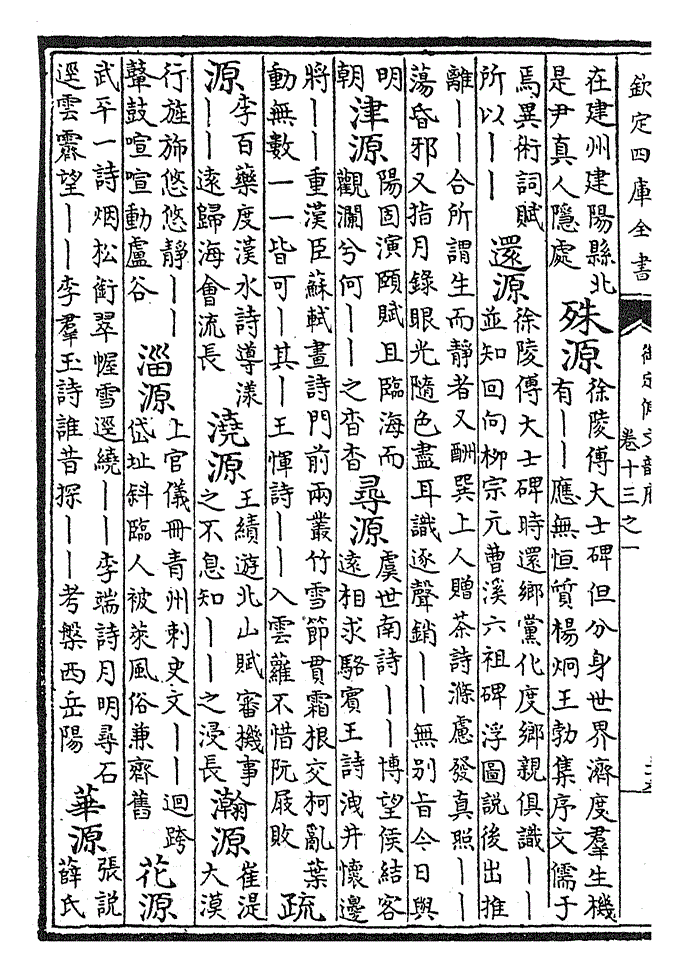 欽定四庫全書
御定佩文韻府
卷十三之一
在建州建陽縣北
是尹真人隱處
殊源
徐陵傅大士碑但分身世界濟度羣生機
有丨丨應無恒質楊炯王勃集序文儒于
焉異術詞賦
所以丨丨
還源
徐陵傅大士碑時還鄉黨化度鄉親俱識丨丨
並知回向柳宗元曹溪六祖碑浮圖説後出推
離丨丨合所謂生而靜者又酬巽上人贈茶詩滌慮發真照丨丨
蕩昏邪又指月錄眼光隨色盡耳識逐聲銷丨丨無别旨今日與
明
朝
津源
陽固演頤賦且臨海而
觀瀾兮何丨丨之杳杳
尋源
虞世南詩丨丨博望侯結客
遠相求駱賓王詩洩井懷邊
將丨丨重漢臣蘇軾畫詩門前兩叢竹雪節貫霜根交柯亂葉
動無數一一皆可丨其丨王惲詩丨丨入雲蘿不惜阮屐敗
疏
源
李百藥度漢水詩導漾
丨丨遠歸海會流長
澆源
王績遊北山賦審機事
之不息知丨丨之浸長
瀚源
崔湜
大漠
行旌斾悠悠靜丨丨
鼙鼓喧喧動盧谷
淄源
上官儀冊青州刺史文丨丨迴跨
岱址斜臨人被萊風俗兼齊舊
花源
武平一詩烟松銜翠幄雪逕繞丨丨李端詩月明尋石
逕雲霽望丨丨李羣玉詩誰昔探丨丨考槃西岳陽
華源
張説
薛氏